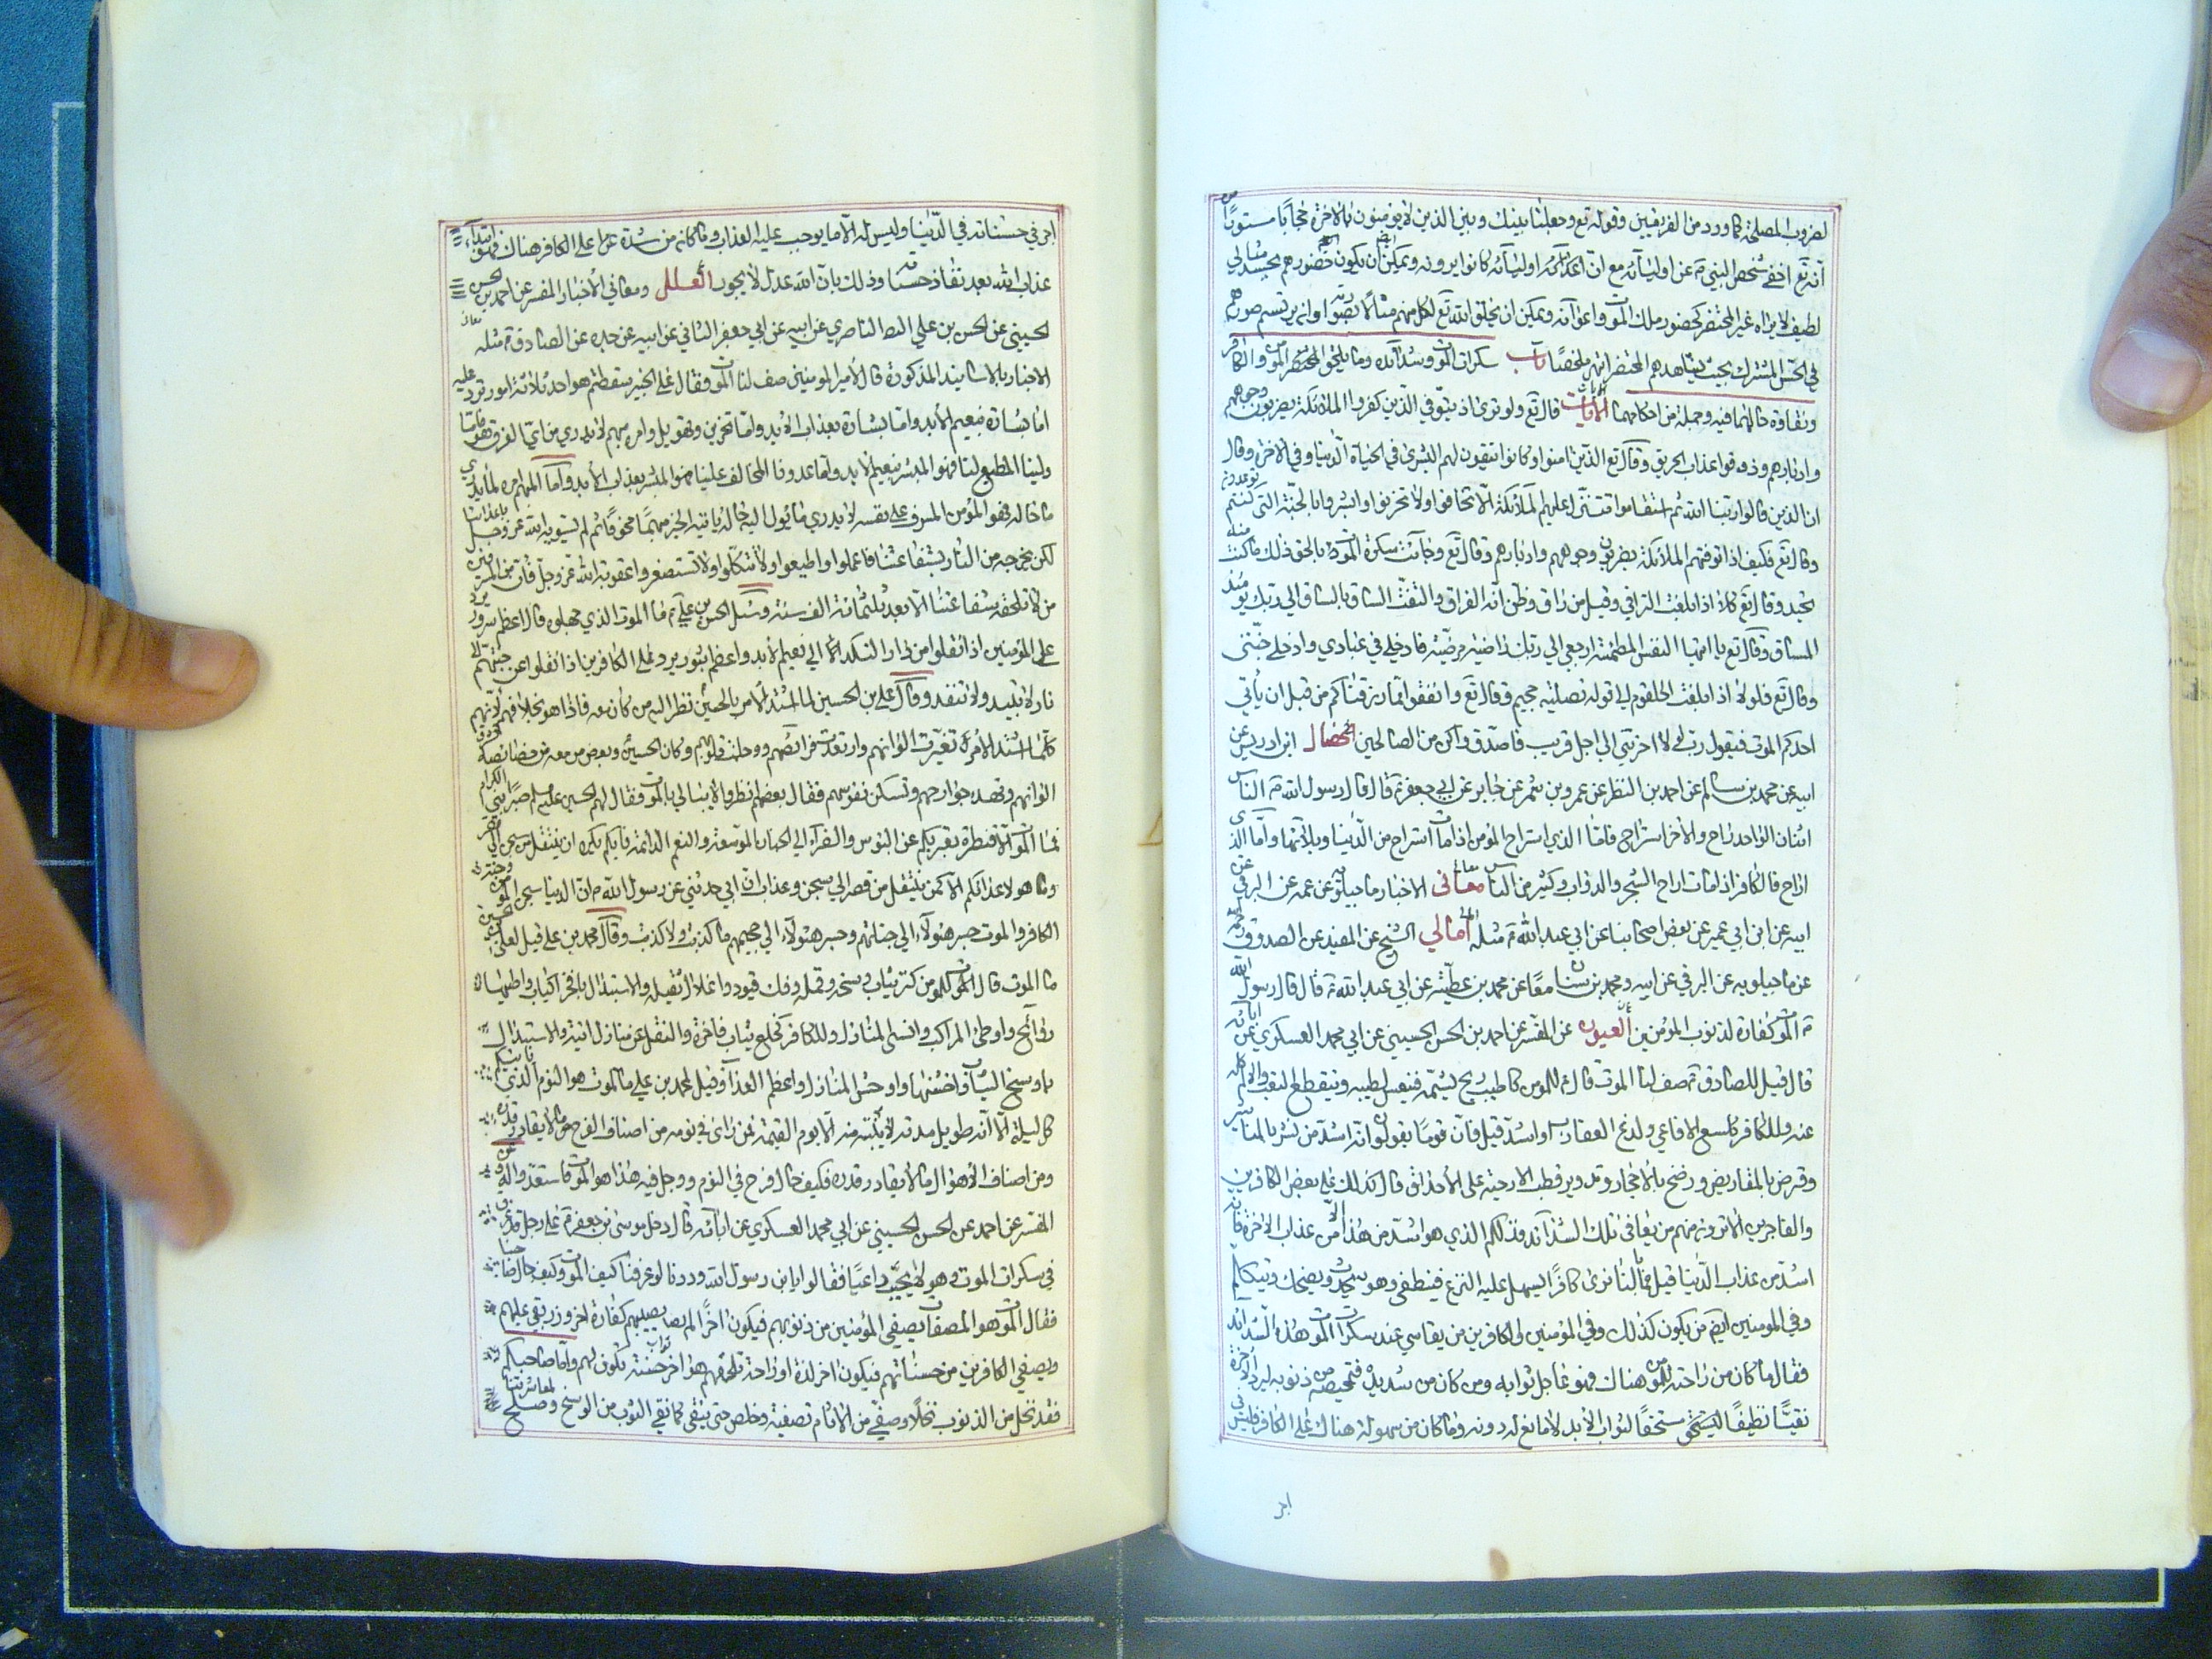 لضروب المصلحة كما ورد من الفريقين وقوله تع وجعلنا بينك وبين الذين لا يؤمنون بالاخرة حجابا مستورا
انه تع اخفى شخص النبي عن اوليائه مع ان اوليائه كانوا يرونه ويمكن ان يكون حضورهم بجسد مثالي
لطيف لا يراه غير المحتضر كحضور ملك الموت واعوانه ويمكن ان يخلق الله تع لكل منهم مثالا بصورته
في الحس المشترك بحيث يشاهدهم المحتضر انتهى ملخصا باب سكرات الموت وشدائده وما يلحق المؤمن والكافر
الايات قال تع ولو ترى اذ يتوفى الذين كفروا الملائكة يضربون وجوههم
وادبارهم وذوقوا عذاب الحريق وقال تع الذين امنوا وكانوا يتقون لهم البشرى في الحياة الدنيا وفي الاخرة وقال
ان الذين قالوا ربنا الله ثم استقاموا تتنزل عليهم الملائكة الا تخافوا ولا تحزنوا وابشروا بالجنة التي كنتم توعدون
وقال تع فكيف اذا توفتهم الملائكة يضربون وجوههم وادبارهم وقال تع وجاءت سكرة الموت بالحق ذلك ما كنت منه
تحيد وقال تع كلا اذا بلغت التراقي وقيل من راق وظن انه الفراق والتفت الساق بالساق الى ربك يومئذ
المساق وقال تع يا ايتها النفس المطمئنة ارجعي الى ربك راضية مرضية فادخلي في عبادي وادخلي جنتي
وقال تع فلولا اذا بلغت الحلقوم الى قوله تصلية جحيم وقال تع وانفقوا مما رزقناكم من قبل ان يأتي
احدكم الموت فيقول رب لولا اخرتني الى اجل قريب فاصدق واكن من الصالحين الخصال ابن ادريس عن
ابيه عن محمد بن سالم عن احمد بن النظر عن عمرو بن شمر عن جابر عن ابي جعفر قال قال رسول الله الناس
اثنان الواحد اراح والاخر استراح فاما الذي استراح المؤمن اذا مات استراح من الدنيا وبلائها واما الذي
اراح فالكافر اذا مات اراح الشجر والدواب وكثير من الناس معاني الاخبار ماجيلويه عن عمه عن البرقي عن
ابيه عن ابن ابي عمير عن بعض اصحابنا عن ابي عبد الله مثله امالي الشيخ عن المفيد عن الصدوق
عن ماجيلويه عن البرقي عن ابيه ومحمد بن سنان معا عن محمد بن عطية عن ابي عبد الله قال قال رسول الله
الموت كفارة لذنوب المؤمنين العيون عن المفسر عن احمد بن الحسن الحسيني عن ابي محمد العسكري عن ابائه
قال قيل للصادق صف لنا الموت قال للمؤمن كاطيب ريح يشمه فينعس لطيبه وينقطع التعب والالم كله
عنه وللكافر كلسع الافاعي ولدغ العقارب او اشد قيل فان قوما يقولون انه اشد من نشر بالمناشير
وقرض بالمقاريض ورضخ بالاحجار وتدوير قطب الارحية على الاحداق قال كذلك على بعض الكافرين
والفاجرين الا ترون منهم من يعاني تلك الشدائد فذلكم الذي هو اشد من هذا الا من عذاب الاخرة فانه
اشد من عذاب الدنيا قيل فما بالنا نرى كافرا يسهل عليه النزع فينطفي وهو يحدث ويضحك ويتكلم
وفي المؤمنين ايضا من يكون كذلك وفي المؤمنين والكافرين من يقاسي عند سكرات الموت هذه الشدائد
فقال ما كان من راحة للمؤمن هناك فهو عاجل ثوابه وما كان من شديدة فتمحيصه من ذنوبه ليرد الاخرة
نقيا نظيفا مستحقا لثواب الابد لا مانع له دونه وما كان من سهولة هناك على الكافر فليوفى
اجر
اجر في حسناته في الدنيا وليس له الا ما يوجب عليه العذاب وما كان من شدة على الكافر هناك فهو ابتداء
عذاب الله بعد نفاذ حسناته وذلك بان الله عدل لا يجور العلل ومعاني الاخبار المفسر عن احمد بن الحسن
الحسيني عن الحسن بن علي الناصري عن ابيه عن ابي جعفر الثاني عن ابيه عن جده عن الصادق مثله معاني
الاخبار بالاسانيد المذكورة قال لامير المؤمنين صف لنا الموت فقال على الخبير سقطتم هو احد ثلاثة امور ترد عليه
اما بشارة بنعيم الابد واما بشارة بعذاب الابد واما تحزين وتهويل وامره مبهم لا يدري من اي الفرق هو فاما
ولينا المطيع لنا فهو المبشر بنعيم الابد واما عدونا المخالف علينا فهو المبشر بعذاب الابد واما المبهم امره لا يدري
ما حاله فهو المؤمن المسرف على نفسه لا يدري ما يؤول اليه حاله ياتيه الخبر مبهما مخوفا ثم لم يسويه الله عز وجل باعدائنا
لكن يخرجه من النار بشفاعتنا فاعملوا واطيعوا ولا تتكلوا ولا تستصغروا عقوبة الله عز وجل فان من المسرفين
من لا تلحقه شفاعتنا الا بعد ثلثمائة الف سنة وسئل الحسن بن علي ما الموت الذي جهلوه قال اعظم سرور يرد
على المؤمنين اذا نقلوا من دار النكد الى نعيم الابد واعظم ثبور يرد على الكافرين اذا نقلوا عن جنتهم الى
نار لا تبيد ولا تنفد وقال علي بن الحسين لما اشتد الامر بالحسين نظر اليه من كان معه فاذا هو بخلافهم لانهم
كلما اشتد الامر تغيرت الوانهم وارتعدت فرائصهم ووجلت قلوبهم وكان الحسين وبعض من معه من خصائصه تشرق
الوانهم وتهدء جوارحهم وتسكن نفوسهم فقال بعضهم انظروا لا يبالي بالموت فقال لهم الحسين صبرا بني الكرام
فما الموت الا قنطرة تعبر بكم عن البؤس والضراء الى الجنان الواسعة والنعم الدائمة فايكم يكره ان ينتقل من سجن الى قصر
وما هو لاعدائكم الا كمن ينتقل من قصر الى سجن وعذاب ان ابي حدثني عن رسول الله ان الدنيا سجن المؤمن وجنة
الكافر والموت جسر هؤلاء الى جنانهم وجسر هؤلاء الى جحيمهم ما كذبت ولا كذبت وقال محمد بن علي قيل لعلي بن الحسين
ما الموت قال للمؤمن كنزع ثياب وسخة قملة وفك قيود واغلال ثقيلة والاستبدال بافخر الثياب واطيبها
روائح واوطئ المراكب وانس المنازل وللكافر كخلع ثياب فاخرة والنقل عن منازل انيسة والاستبدال
باوسخ الثياب واخشنها واوحش المنازل واعظم العذاب وقيل لمحمد بن علي ما الموت هو النوم الذي ياتيكم
كل ليلة الا انه طويل مدته لا ينتبه منه الا يوم القيمة فمن راى في نومه من اصناف الفرح ما لا يقادر قدره
ومن اصناف الاهوال ما لا يقادر قدره فكيف حال فرح في النوم ووجل فيه هذا هو الموت فاستعدوا له
المفسر عن احمد عن الحسن الحسيني عن ابي محمد العسكري عن ابائه قال دخل موسى بن جعفر على رجل قد غرق
في سكرات الموت وهو لا يجيب داعيا فقالوا يا بن رسول الله وددنا لو عرفنا كيف الموت وكيف حال صاحبنا
فقال الموت هو المصفاة يصفي المؤمنين من ذنوبهم فيكون اخر الم يصيبهم كفارة اخر وزر بقي عليهم
ويصفي الكافرين من حسناتهم فيكون اخر لذة او راحة تلحقهم هو اخر ثواب حسنة تكون لهم واما صاحبكم
فقد نخل من الذنوب نخلا وصفي من الاثام تصفية وخلص حتى ينقى كما نقي الثوب من الوسخ وصلح لمعاشرتنا